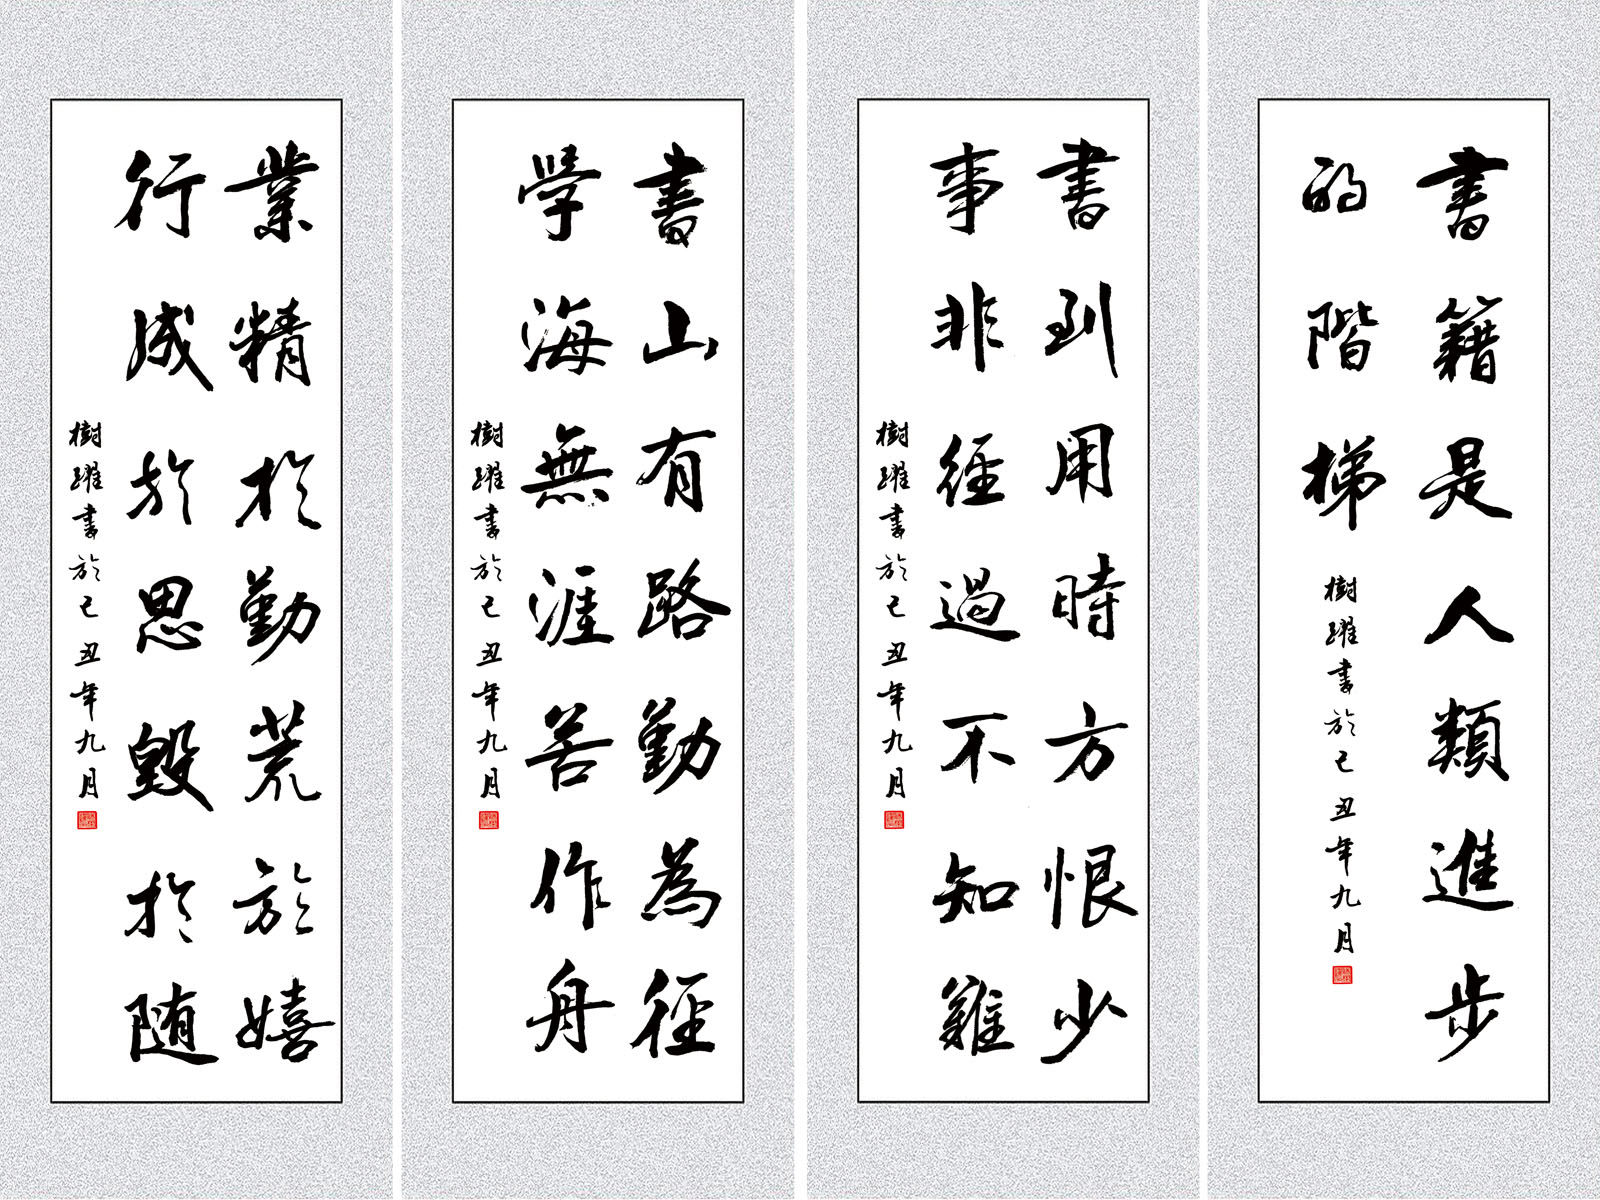 書籍是人類進步
的階梯
樹躍書於己丑年九月
書到用時方恨少
事非經過不知難
樹躍書於己丑年九月
書山有路勤為徑
學海無涯苦作舟
樹躍書於己丑年九月
業精於勤荒於嬉
行成於思毀於随
樹躍書於己丑年九月